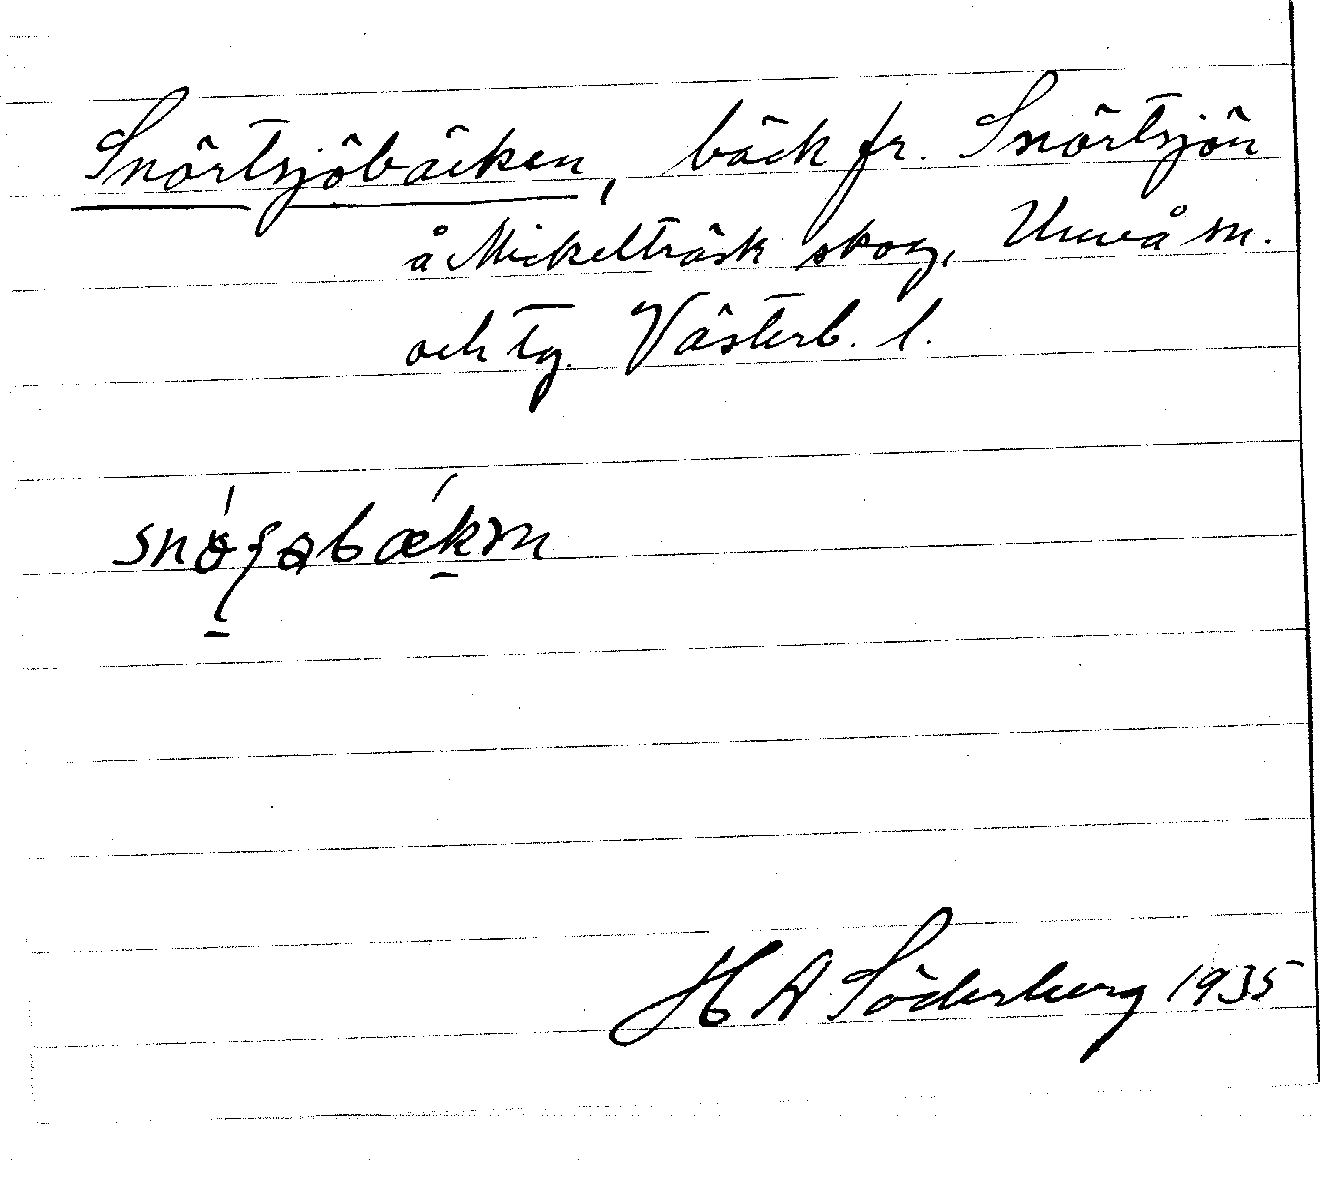 Snörtsjöbäcken, bäck fr. Snörtsjön
å Mickelträsk skog, Umeå sn.
och tg. Västerb. l.
H A Söderberg 1935